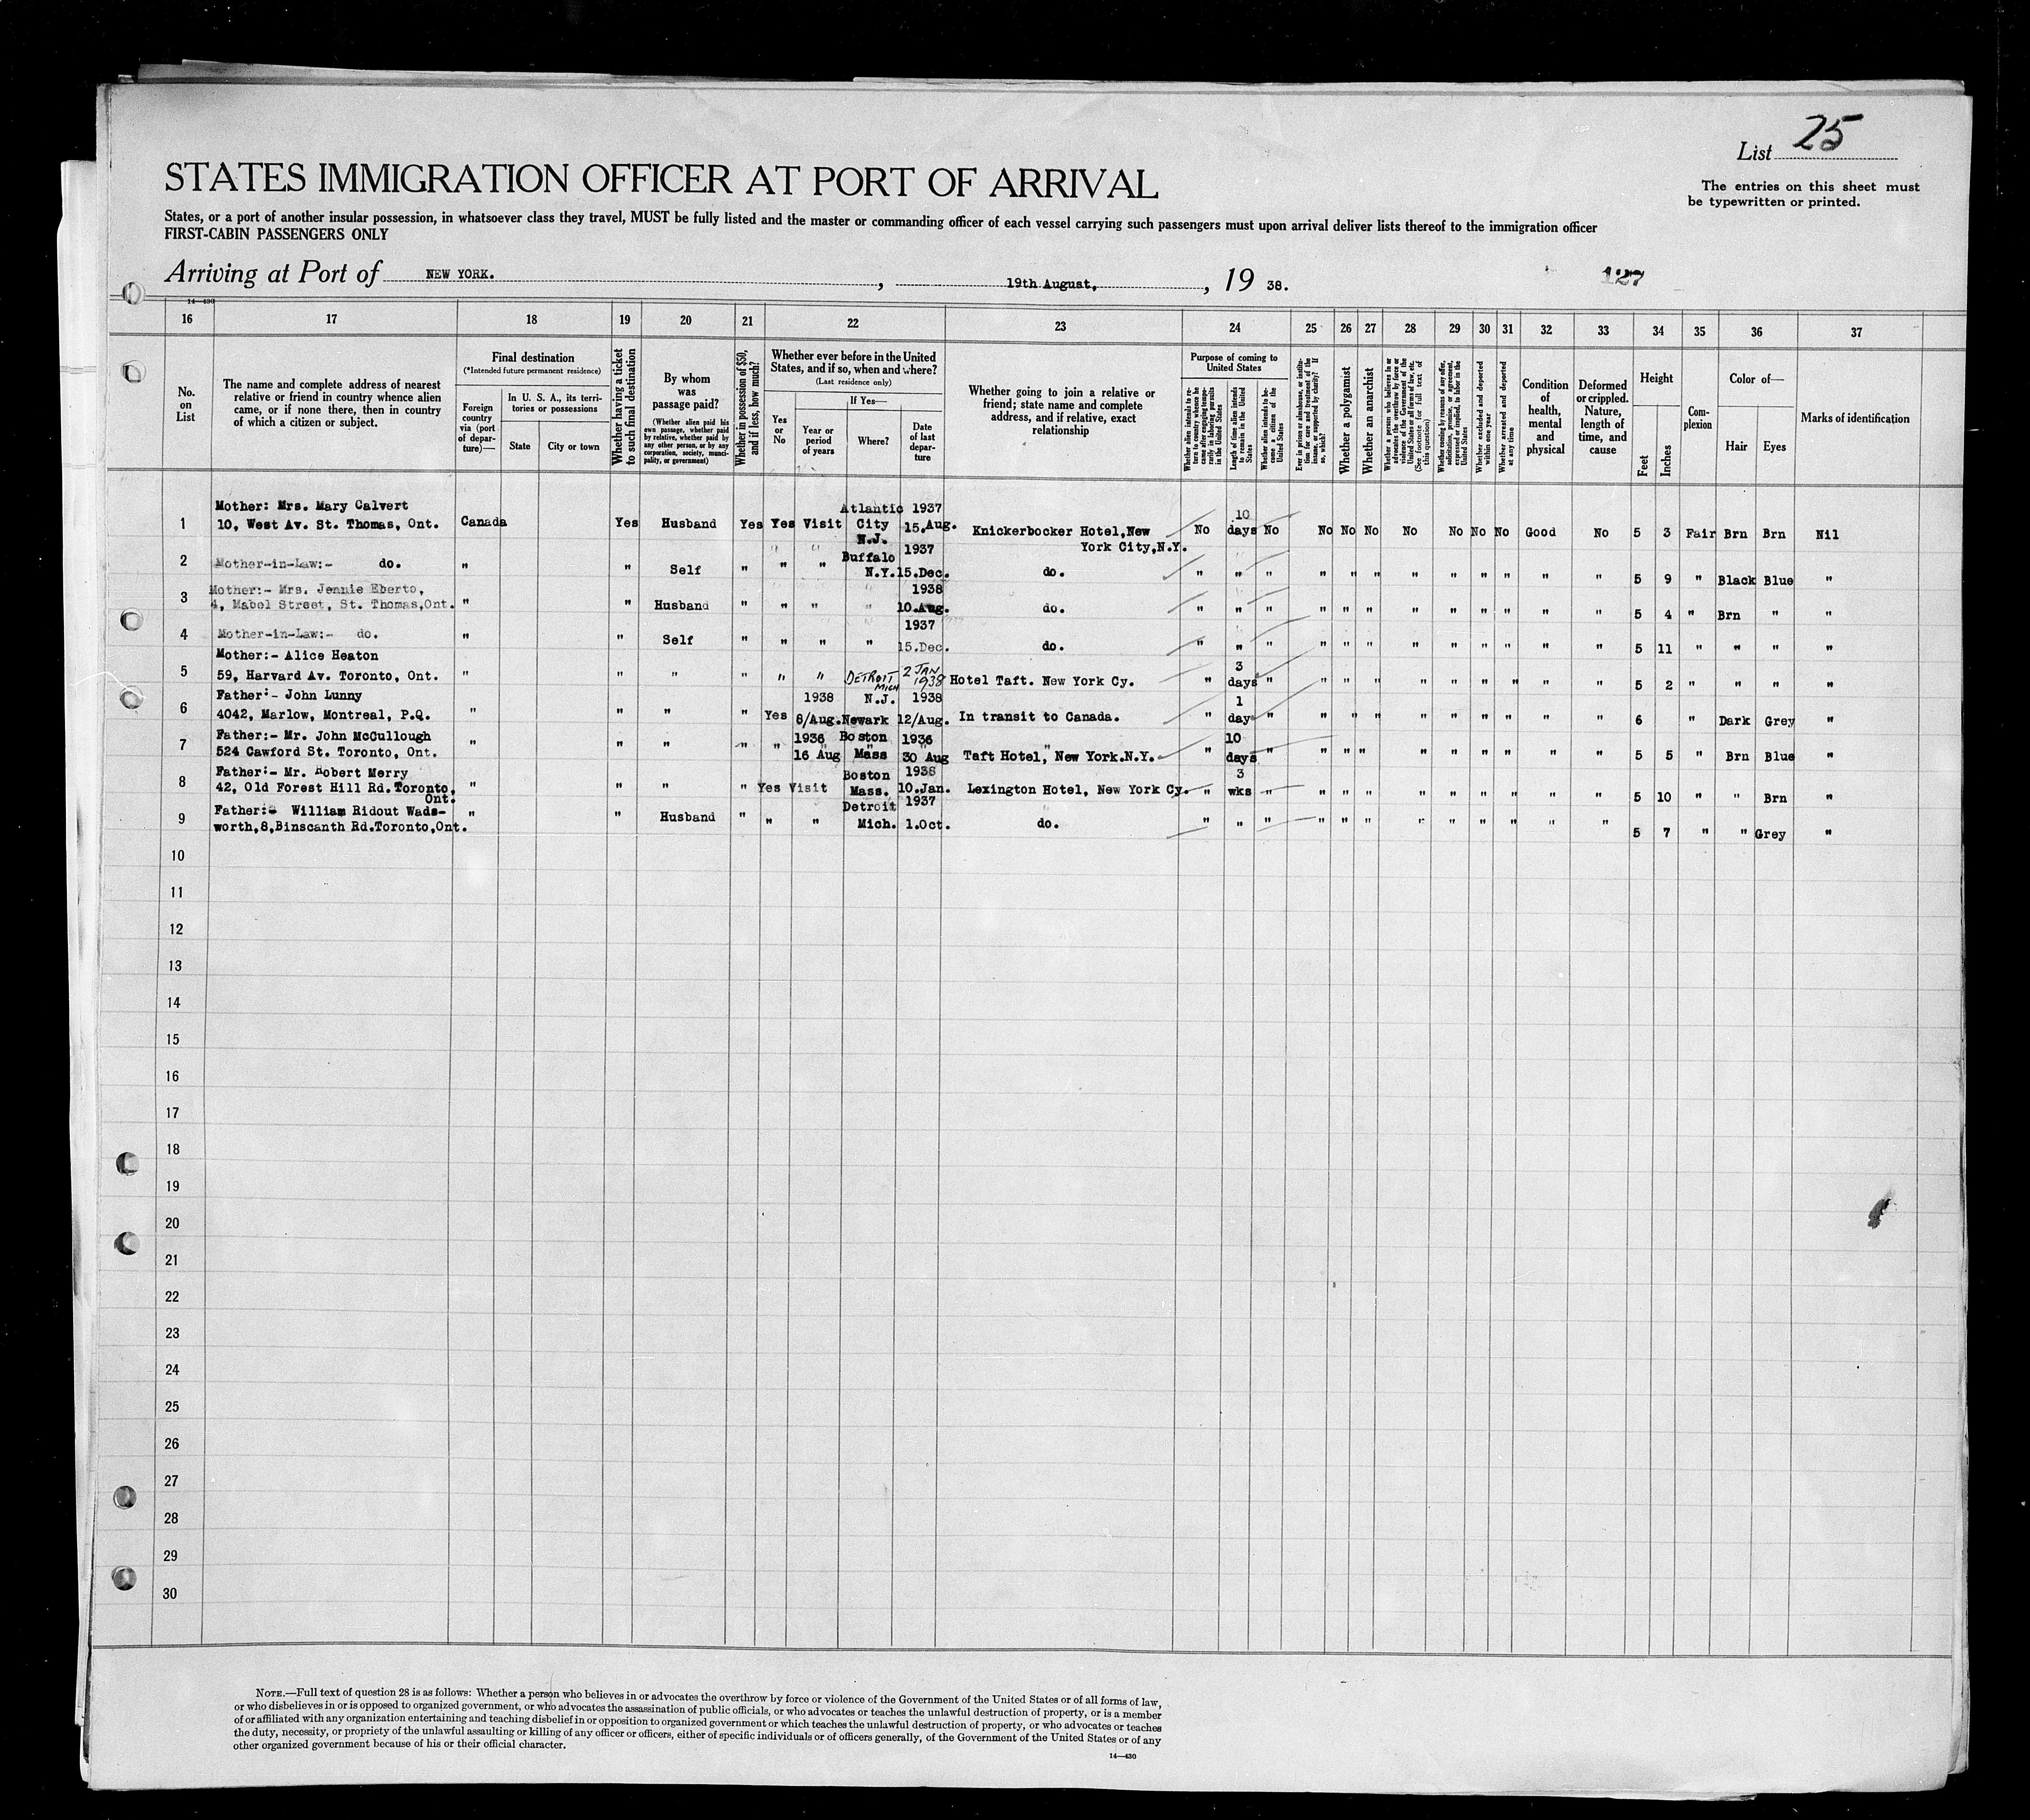 List 25
STATES IMMIGRATION OFFICER AT PORT OF ARRIVAL
The entries on this sheet must
be typewritten or printed.
States, or a port of another insular possession, in whatsoever class they travel, MUST be fully listed and the master or commanding officer of each vessel carrying such passengers must upon arrival deliver lists thereof to the immigration officer
FIRST-CABIN PASSENGERS ONLY
Arriving at Port of NEW YORK. , 19th August, , 19 38. 127
14—430
16 17 18 19 20 21 22 23 24 25 26 27 28 29 30 31 32 33 34 35 36 37
No.
on
List
The name and complete address of nearest
relative or friend in country whence alien
came, or if none there, then in country
of which a citizen or subject.
Final destination
(*Intended future permanent residence)
Foreign
country
via (port
of depar-
ture)—
In U. S. A., its terri-
tories or possessions
State City or town
Whether having a ticket
to such final destination
By whom
was
passage paid?
(Whether alien paid his
own passage, whether paid
by relative, whether paid by
any other person, or by any
corporation, society, munci-
pality, or government)
Whether in possession of $50,
and if less, how much?
Whether ever before in the United
States, and if so, when and where?
(Last residence only)
Yes
or
No
If Yes—
Year or
period
of years
Where?
Date
of last
depar-
ture
Whether going to join a relative or
friend; state name and complete
address, and if relative, exact
relationship
Purpose of coming to
United States
Whether alien intends to re-
turn to country whence he
came after engaging tempo-
rarily in laboring pursuits
in the United States
Length of time alien intends
to remain in the United
States
Whether alien intends to be-
come a citizen of the
United States
Ever in prison or almshouse, or institu-
tion for care and treatment of the
insane, or supported by charity? If
so, which?
Whether a polygamist
Whether an anarchist
Whether a person who believes in or
advocates the overthrow by force or
violence of the Government of the
United States or all forms of law, etc.
(See footnote for full text of
this question)
Whether coming by reasons of any offer,
solicitation, promise, or agreement,
expressed or implied, to labor in the
United States
Whether excluded and deported
within one year
Whether arrested and deported
at any time
Condition
of
health,
mental
and
physical
Deformed
or crippled.
Nature,
length of
time, and
cause
Height
Feet Inches
Com-
plexion
Color of—
Hair Eyes
Marks of identification
Mother: Mrs. Mary Calvert Atlantic 1937 10
1 10, West Av. St. Thomas, Ont. Canada Yes Husband Yes Yes Visit City 15.Aug. Knickerbocker Hotel,New No days No No No No No No No No Good No 5 3 Fair Brn Brn Nil
N.J. York City,N.Y.
" " Buffalo 1937
2 Mother-in-Law:- do. " " Self " " " N.Y. 15.Dec. do. " " " " " " " " " " " " 5 9 " Black Blue "
Mother:- Mrs. Jennie Eberto, 1938
3 4, Mabel Street, St. Thomas,Ont. " " Husband " " " " 10.Aug. do. " " " " " " " " " " " " 5 4 " Brn " "
1937
4 Mother-in-Law:- do. " " Self " " " " 15.Dec. do. " " " " " " " " " " " " 5 11 " " " "
Mother:- Alice Heaton 3
5 59, Harvard Av. Toronto, Ont. " " " " " " DETROIT MICH 2 JAN 1938 Hotel Taft. New York Cy. " days " " " " " " " " " " 5 2 " " " "
Father:- John Lunny 1938 N.J. 1938 1
6 4042, Marlow, Montreal, P.Q. " " " " Yes 8/Aug. Newark 12/Aug. In transit to Canada. " day " " " " " " " " " " 6 " Dark Grey "
Father:- Mr. John McCullough 1936 Boston 1936 10
7 524 Cawford St. Toronto, Ont. " " " " " 16 Aug Mass 30 Aug Taft Hotel, New York.N.Y. " days " " " " " " " " " " 5 5 " Brn Blue "
Father:- Mr. Robert Merry Boston 1938 3
8 42, Old Forest Hill Rd. Toronto, " " " " Yes Visit Mass. 10.Jan. Lexington Hotel, New York Cy. " wks " " " " " " " " " " 5 10 " " Brn "
Ont.
Father:- William Ridout Wads- Detroit 1937
9 worth,8,Binscanth Rd.Toronto,Ont. " " Husband " " " Mich. 1.Oct. do. " " " " " " " " " " " " 5 7 " " Grey "
10
11
12
13
14
15
16
17
18
19
20
21
22
23
24
25
26
27
28
29
30
NOTE.—Full text of question 28 is as follows: Whether a person who believes in or advocates the overthrow by force or violence of the Government of the United States or of all forms of law,
or who disbelieves in or is opposed to organized government, or who advocates the assassination of public officials, or who advocates or teaches the unlawful destruction of property, or is a member
of or affiliated with any organization entertaining and teaching disbelief in or opposition to organized government or which teaches the unlawful destruction of property, or who advocates or teaches
the duty, necessity, or propriety of the unlawful assaulting or killing of any officer or officers, either of specific individuals or of officers generally, of the Government of the United States or of any
other organized government because of his or their official character.
14—430